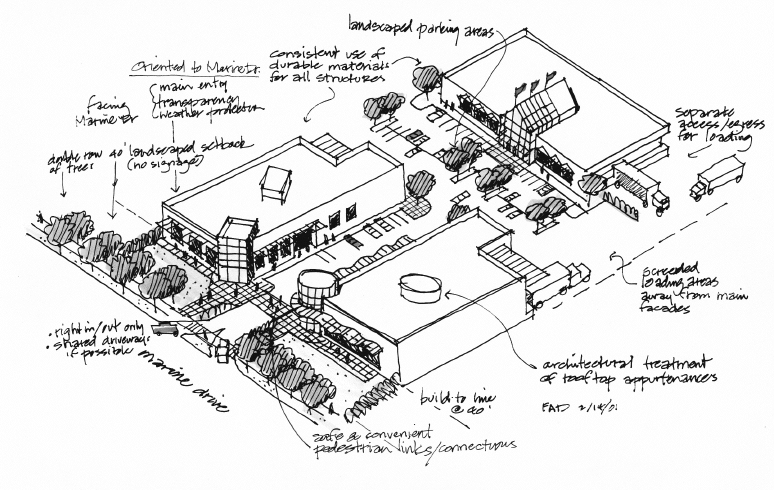 landscaped parking areas
consistent use of
durable materials
for all structures
Oriented to Marine Dr.
main entry
transparency
weather protection
facing
Marine Dr
double row
of trees
40' landscaped setback
(no signage)
separate
access/egress
for loading
screened
loading areas
away from main
facades
• right in/out only
• shared driveways
if possible
marine drive
build to line
@ 40'
architectural treatment
of rooftop appurtenances
safe & convenient
pedestrian links/connections